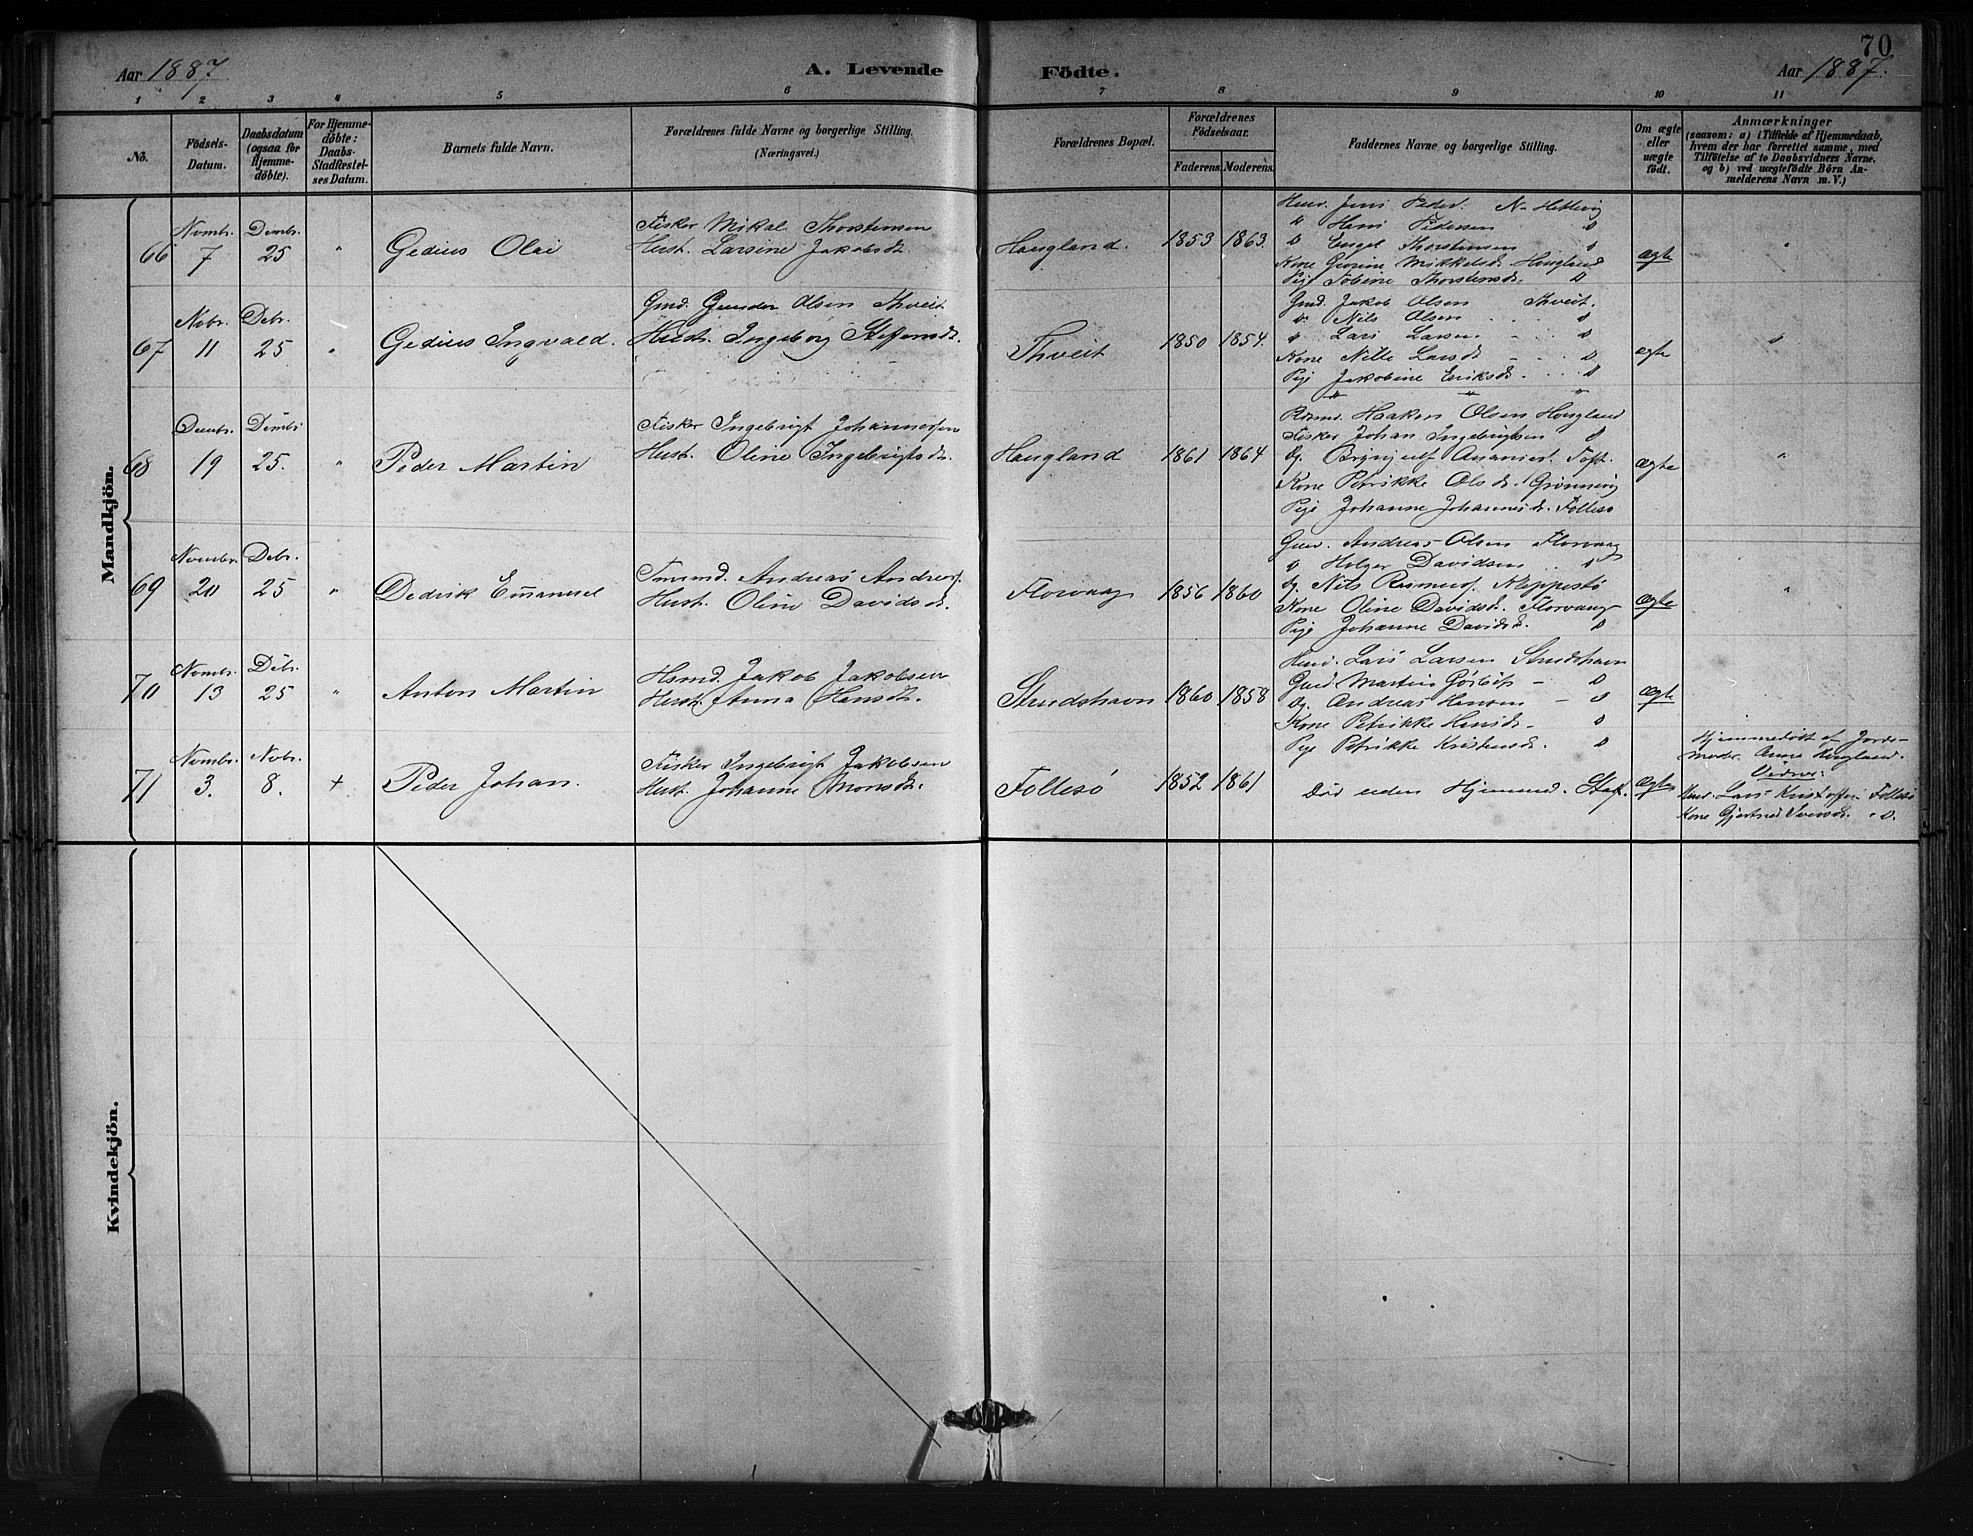 70
Aar 1887
A. Levende Födte.
Aar 1887.
1 2 3 4 5 6 7 8 9 10 11
No.
Födsels-Datum.
Daabsdatum (ogsaa for Hjemme-döbte).
For Hjemme-döbte: Daabs-Stadfæstel-ses Datum.
Barnets fulde Navn.
Forældrenes fulde Navne og borgerlige Stilling. (Næringsvei.)
Forældrenes Bopæl.
Forældrenes Födselsaar.
Faderens. Moderens.
Faddernes Navne og borgerlige Stilling.
Om ægte eller uægte födt.
Anmærkninger
(saasom: a) i Tilfælde af Hjemmedaab, hvem der har forrettet samme, med Tilföielse af to Daabsvidners Navne, og b) ved uægtefödte Börn An-melderens Navn m. V.)
Mandkjön.
66
Novmbr. 7
Dembr. 25
"
Gedius Olai
Fisker Mikal Thorstensen
Hust. Larsine Jakobsdr.
Haugland.
1853 1863.
Jens Peder
Hans Pedersen D
D Engel Thorstensen
Kone Mikkelsd. Haugland
Pige Thorstensd. D
ægte
"
67
Nobr. 11
Debr. 25
"
Gedius Ingvald.
Gmd. Gunder Olsen Thveit
Hust. Ingeborg Steffensdr.
Thveit
1850 1854.
Gmd. Jakob Olsen Thveit.
D Nils Olsen D
D Lars Larsen D
Kone Nille Larsd. D
Pige Jakobine Eriksd. D
ægte
"
68
Decmbr. 19
Dembr. 25.
"
Peder Martin
Fisker Ingebrigt Johannessen
Hust. Oline Ingebrigtsdr.
Haugland
1861 1864
Haakon Olsen Hougland
Fisker Johan Ingebrigtsen D
Kone Petrikke Olsd. Grönnevig
Pige Johanne Johannesd. Follesö
ægte
"
69
Novmbr. 20
Debr. 25
"
Dedrik Emanuel
Andreas Andreas.
Hust. Oline Davidsdr.
Florvaag
1856 1860
Andreas Olsen Florvaag
D Holger Davidsen D
Ug. Nils Kleppestö
Kone Oline Davidsd. Florvaag
Pige Johanne Davidsd. D
ægte
"
70
Novmbr. 13
Debr. 25
"
Anton Martin
Hsmd. Jakob Jakobsen
Hust. Anna Hansdr.
Strudshavn
1860 1858
Lars Larsen Strudshavn
Gmd Martin D
Ug. Andreas Hansen D
Kone Petrikke Hansd. D
Pige Petrikke Kristensd. D
ægte
"
71
Novmbr. 3.
Nobr. 8.
+
Peder Johan.
Fisker Ingebrigt Jakobsen
Hust. Johanne Monsdr.
Follesö
1852 1861
Död uden Hjemmed. Staf.
ægte
Hjemmedöbt af Jorde-
moder Anne Haugland.
Vidner:
Lars Follesö
Kone Gjertrud D.
Kvindekjön.